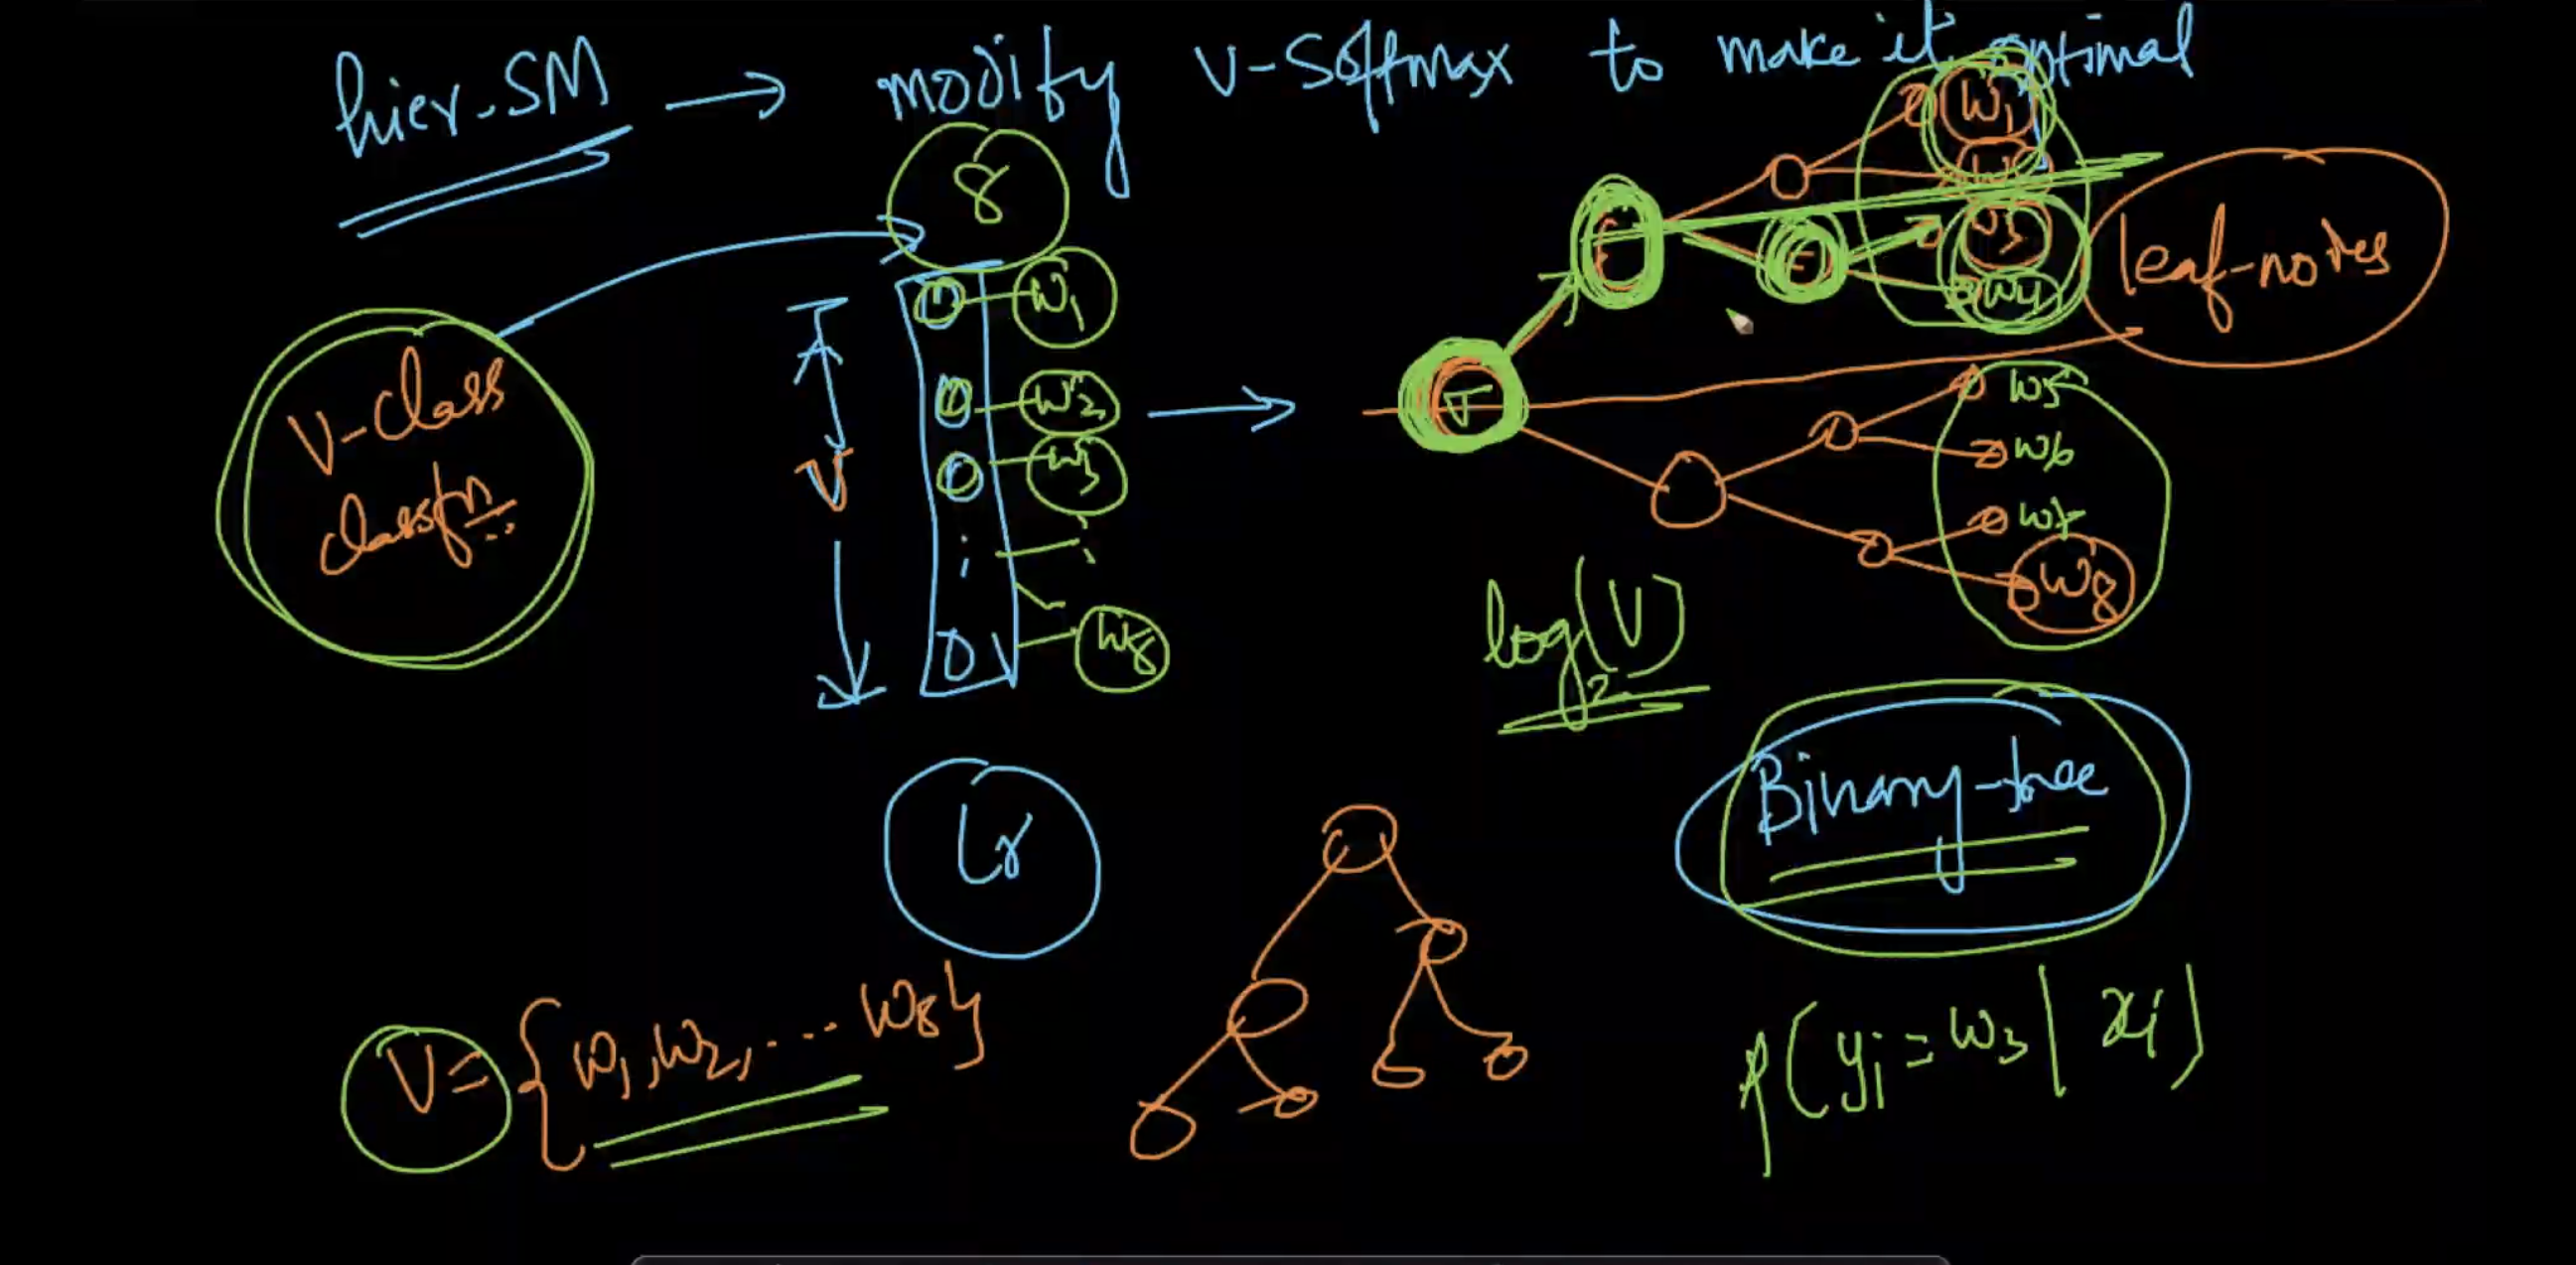 hier-SM → modify V-Softmax to make it optimal
8
V-class
classfn
V
w1
w2
w3
w8
w1
w3
w4
w5
w6
w7
w8
leaf-notes
log2(V)
Binary-tree
Lr
V = {w1, w2, .... w8}
p(yi = w3 | xi)